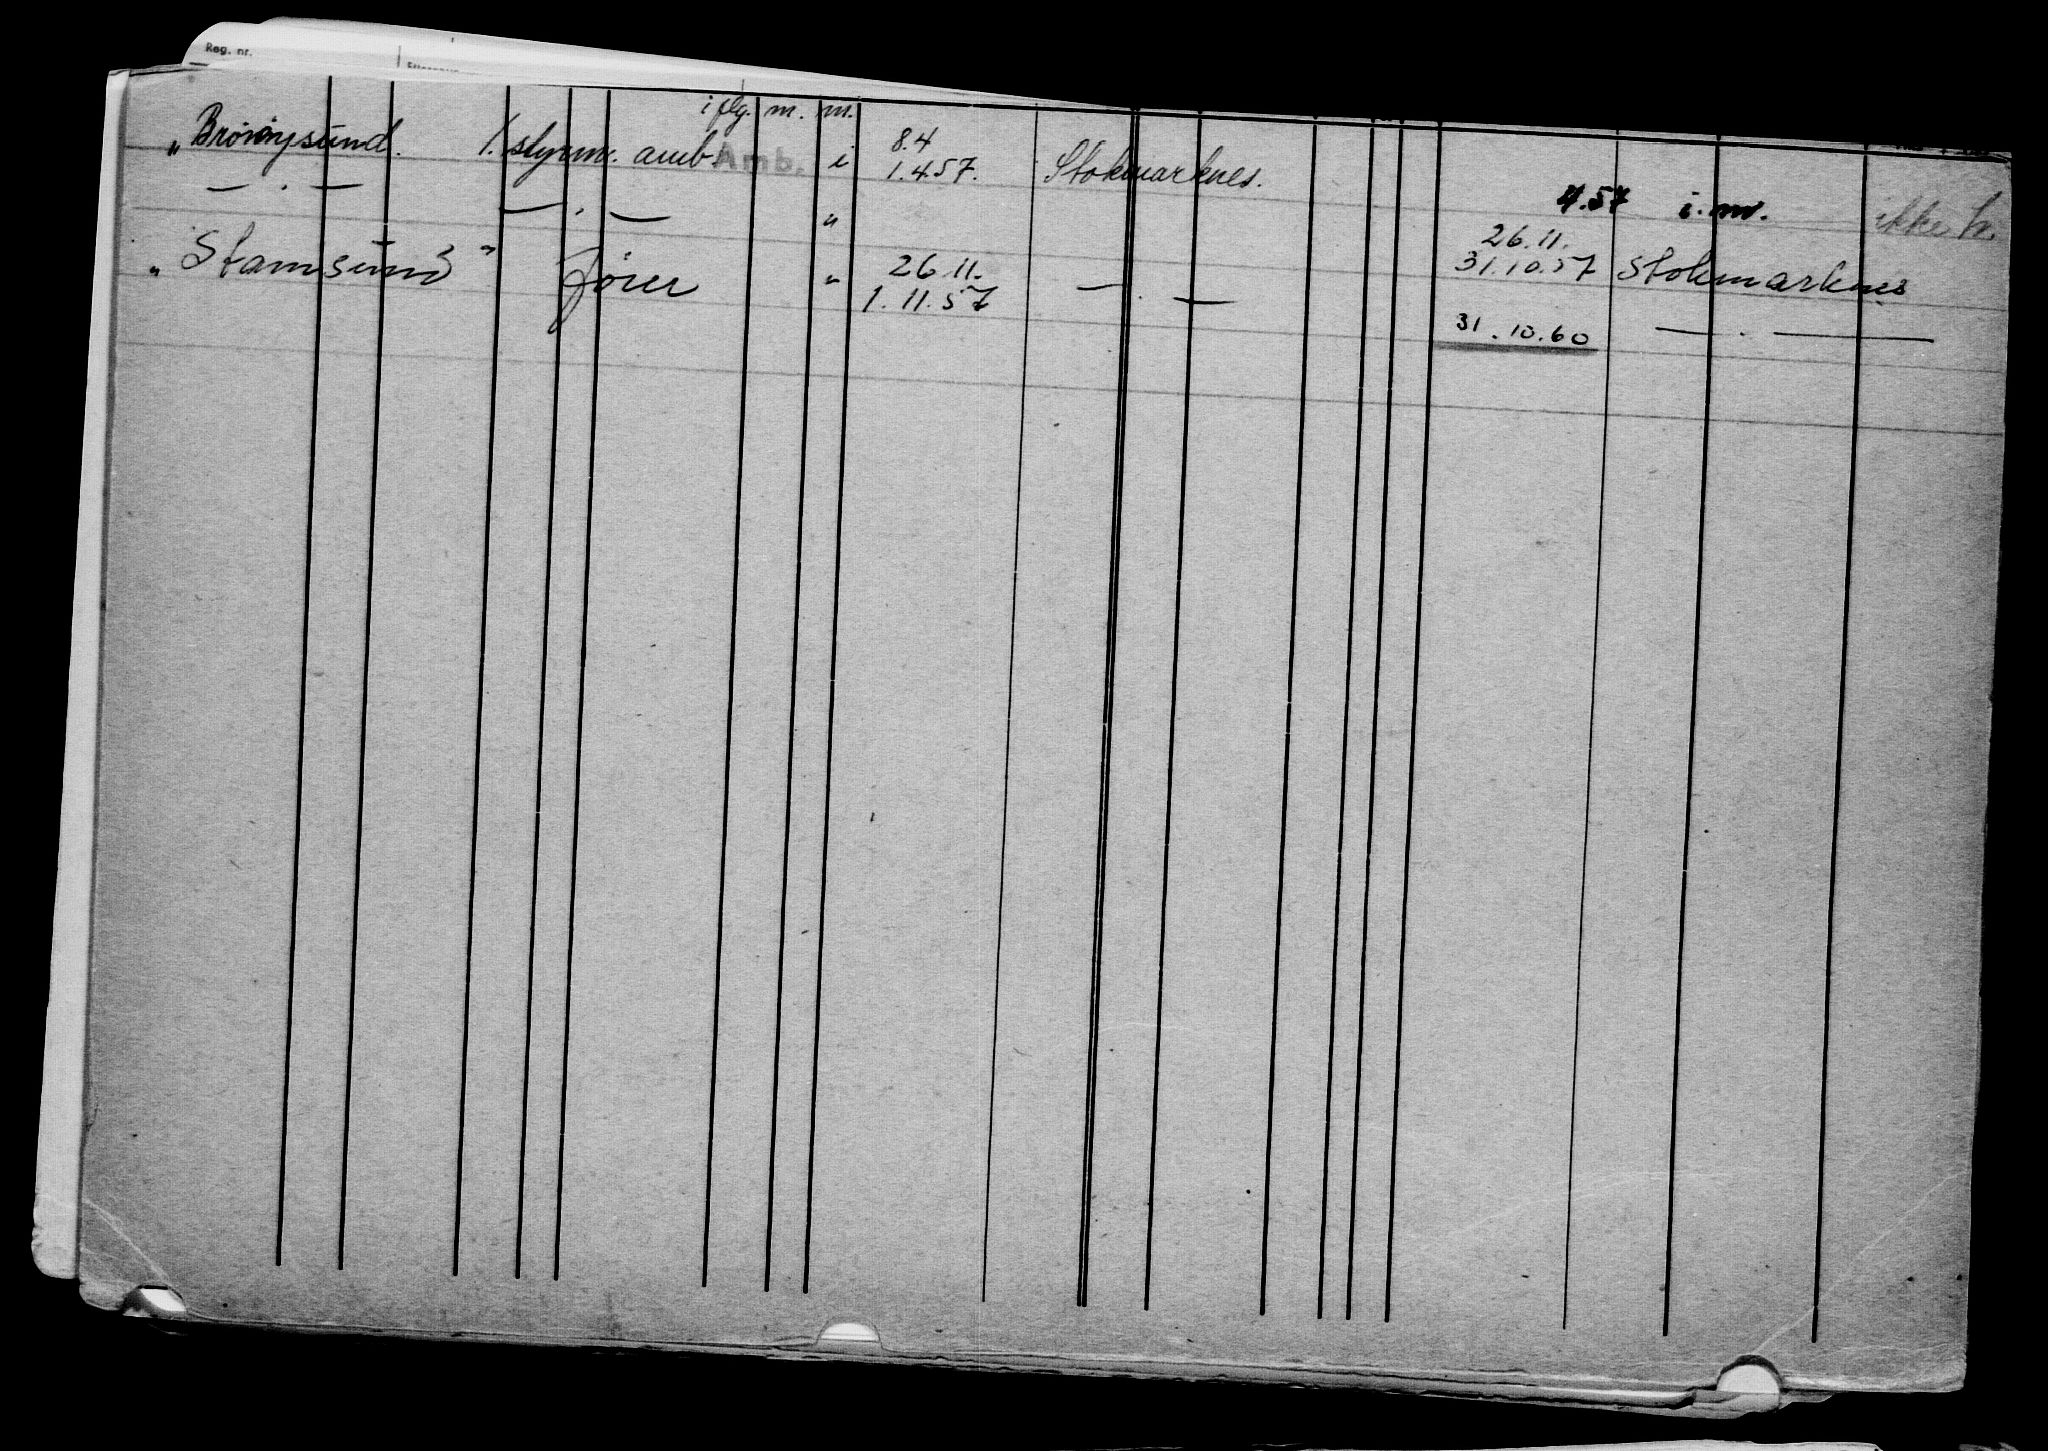 Reg. nr.
i flg. m. m.
„Brönnysund. 1. styrm. amb. Amb. i 8.4 1.4.57. Stokmarknes.
— . — — . — " 4.57 i. m. ikke
„Stamsund" fører " 26.11. 1.11.57 — . — 26.11. 31.10.57 Stokmarknes
31.10.60 — . —